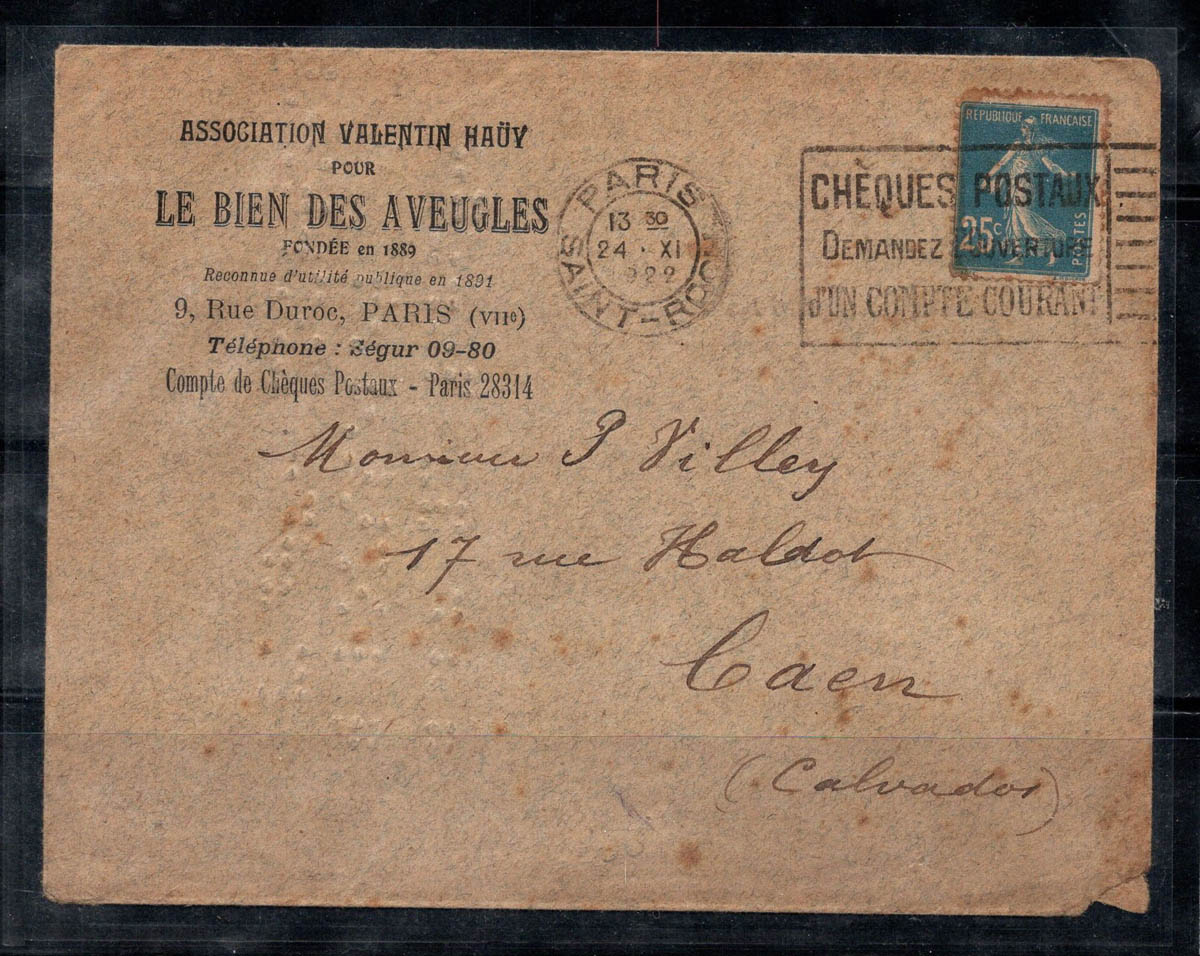 ASSOCIATION VALENTIN HAÜY
POUR
LE BIEN DES AVEUGLES
FONDÉE en 1889
Reconnue d'utilité publique en 1891
9, Rue Duroc, PARIS (VIIe)
Téléphone : Ségur 09-80
Compte de Chèques Postaux - Paris 28314
PARIS
13 30
24 · XI
1922
SAINT-ROCH
CHÈQUES POSTAUX
DEMANDEZ L'OUVERTURE
D'UN COMPTE COURANT
REPUBLIQUE FRANÇAISE
25c
POSTES
Monsieur P Villey
17 rue Haldot
Caen
(Calvados)